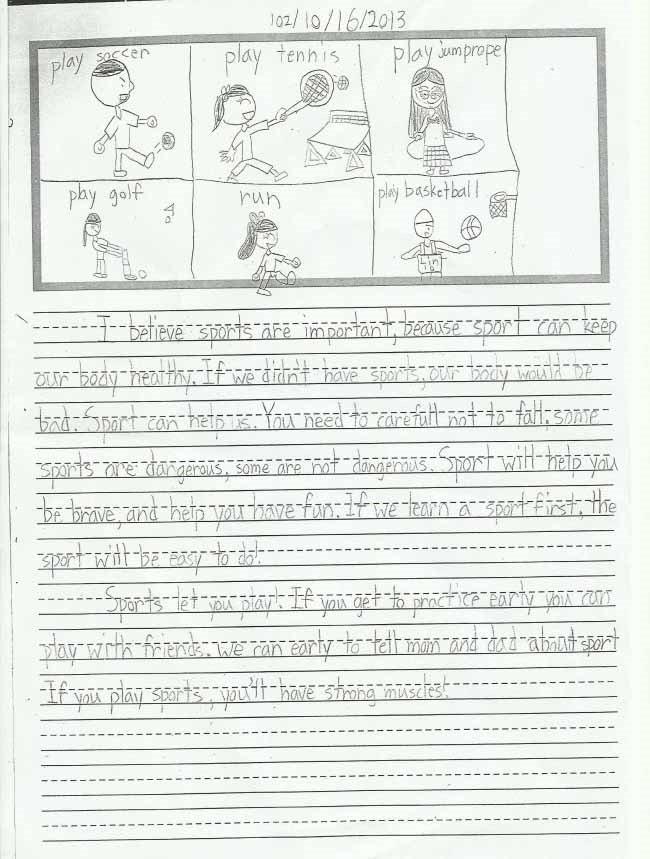 102/10/16/2013
play soccer
play tennis
play jumprope
play golf
run
play basketball
Lin
I believe sports are important, because sport can keep
our body healthy. If we didn't have sports, our body would be
bad. Sport can help us. You need to carefull not to fall, some
sports are dangerous, some are not dangerous. Sport will help you
be brave, and help you have fun. If we learn a sport first, the
sport will be easy to do!
Sports let you play! If you get to practice early you can
play with friends. We can early to tell mom and dad about sport
If you play sports, you'll have strong muscles!